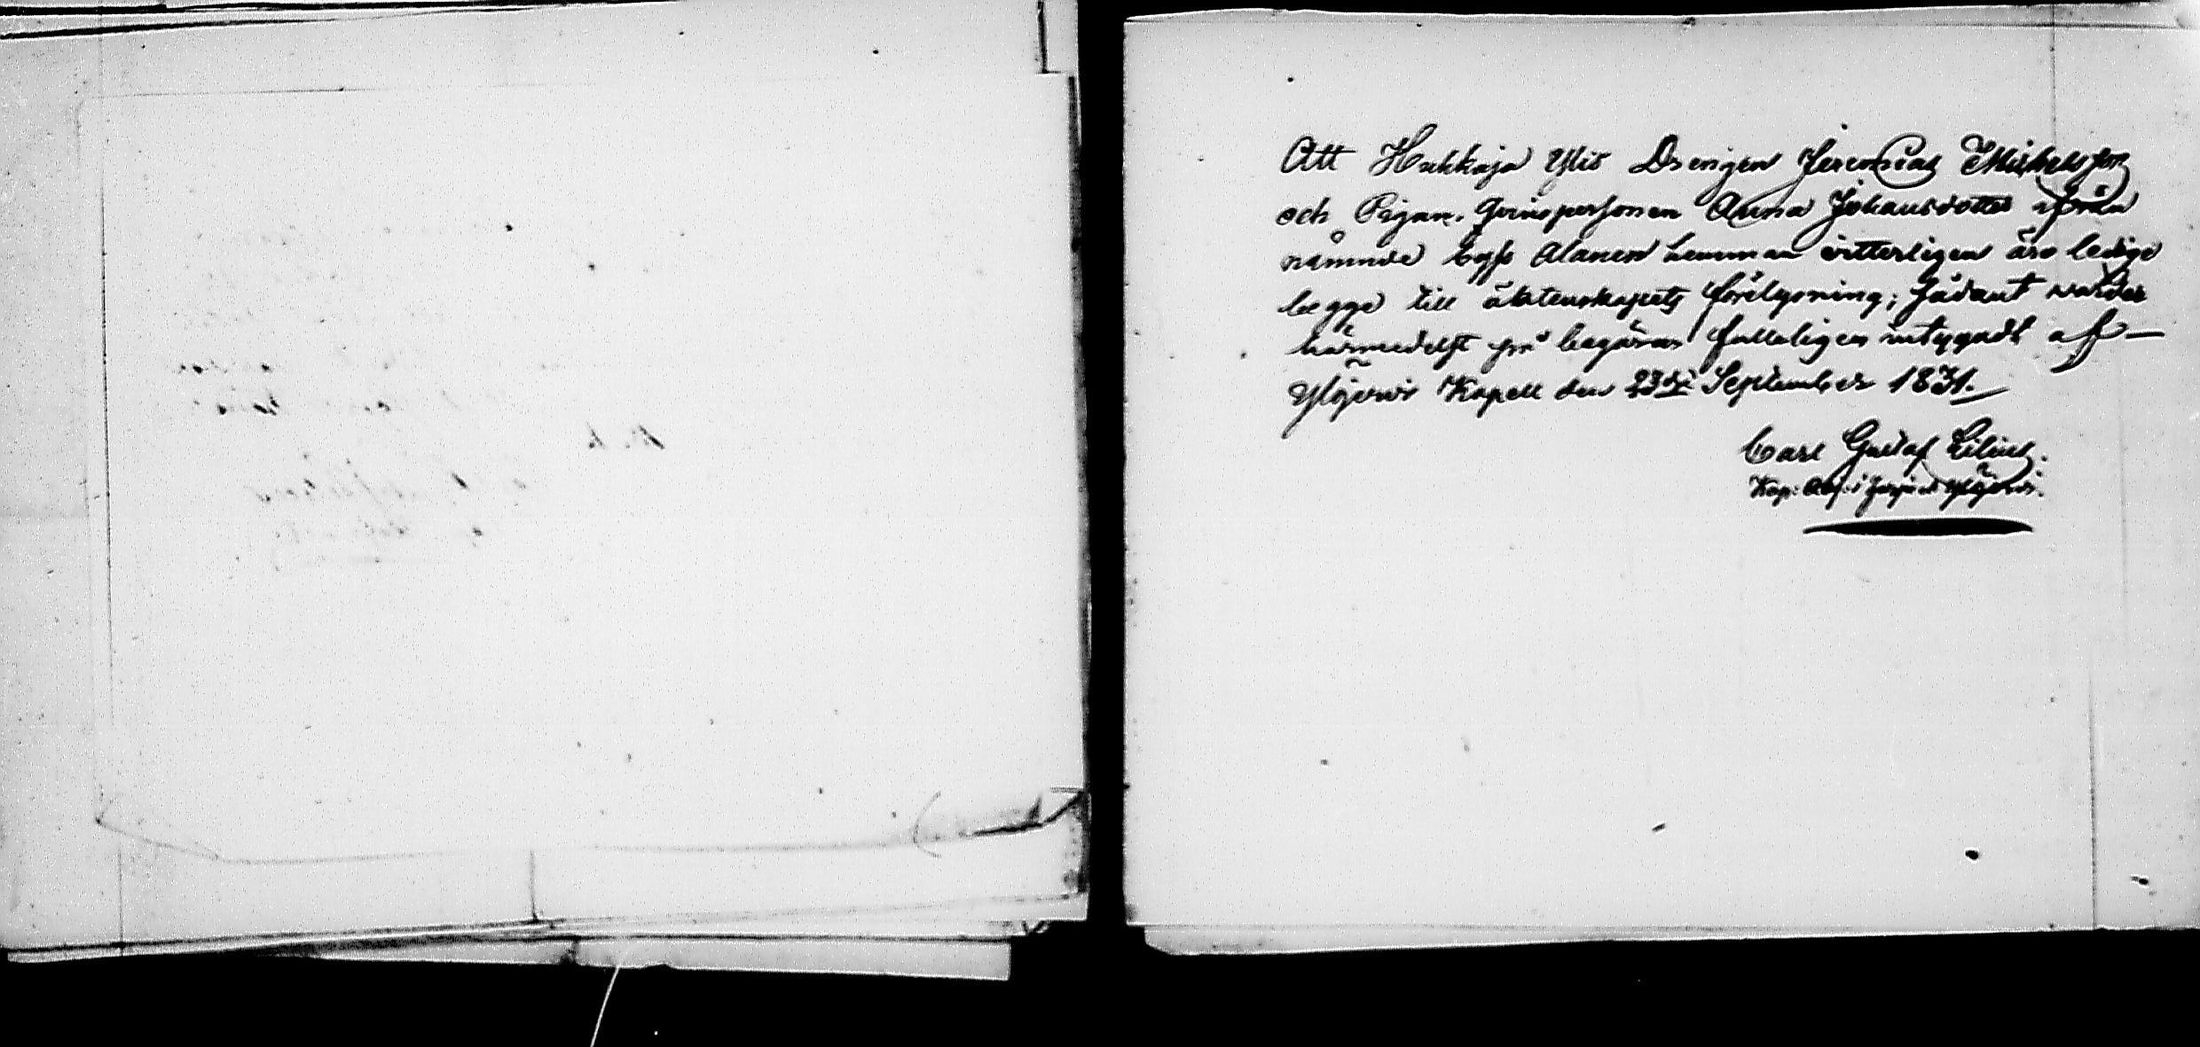 Att Hukkaja Ylis Drengen Jeremias Mickelsson
och Pigan, Qvinspersonen Anna Johansdotter ifrån
nämnde byss Alanen hemman vitterligen äro ledige
begge till äktenskapets förelysning; sådant warder
härmedelst på begäran fulleligen intygadt af —
Ylöjerwi Kapell den 23dj September 1831.
Carl Gustaf Lilius.
Kap: Adj: i Ylöjerwi.